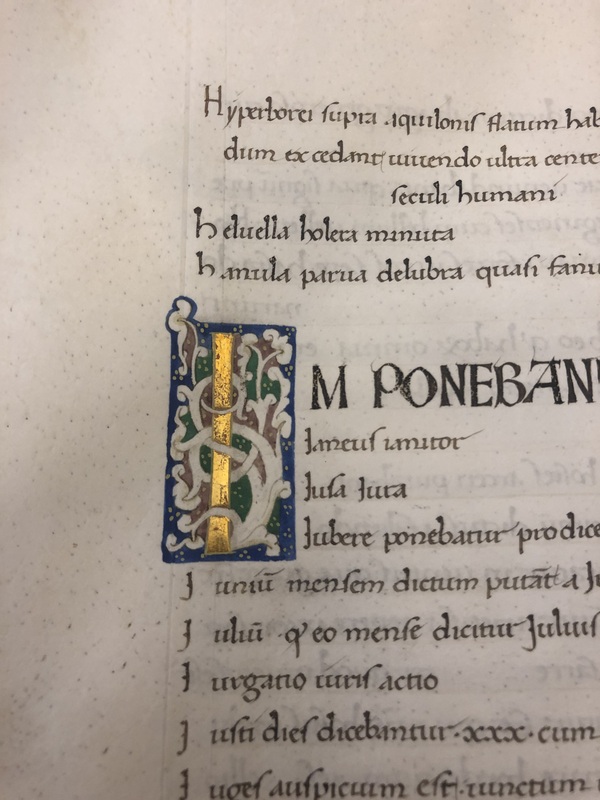 Hyperborei supra aquilonis flatum hab
dum excedant uiuendo ultra cente
seculi humani
heluella holera minuta
hanula parua delubra quasi fanu
IM PONEBANT
Ianeus ianitor
Iusa Iura
Iubere ponebatur pro dice
Iuniū mensem dictum putāt a Ju
Iuliū q' eo mense dicitur Julius
Iurgatio iuris actio
Iusti dies dicebantur·xxx·cum
Iuges auspicium est· iunctum